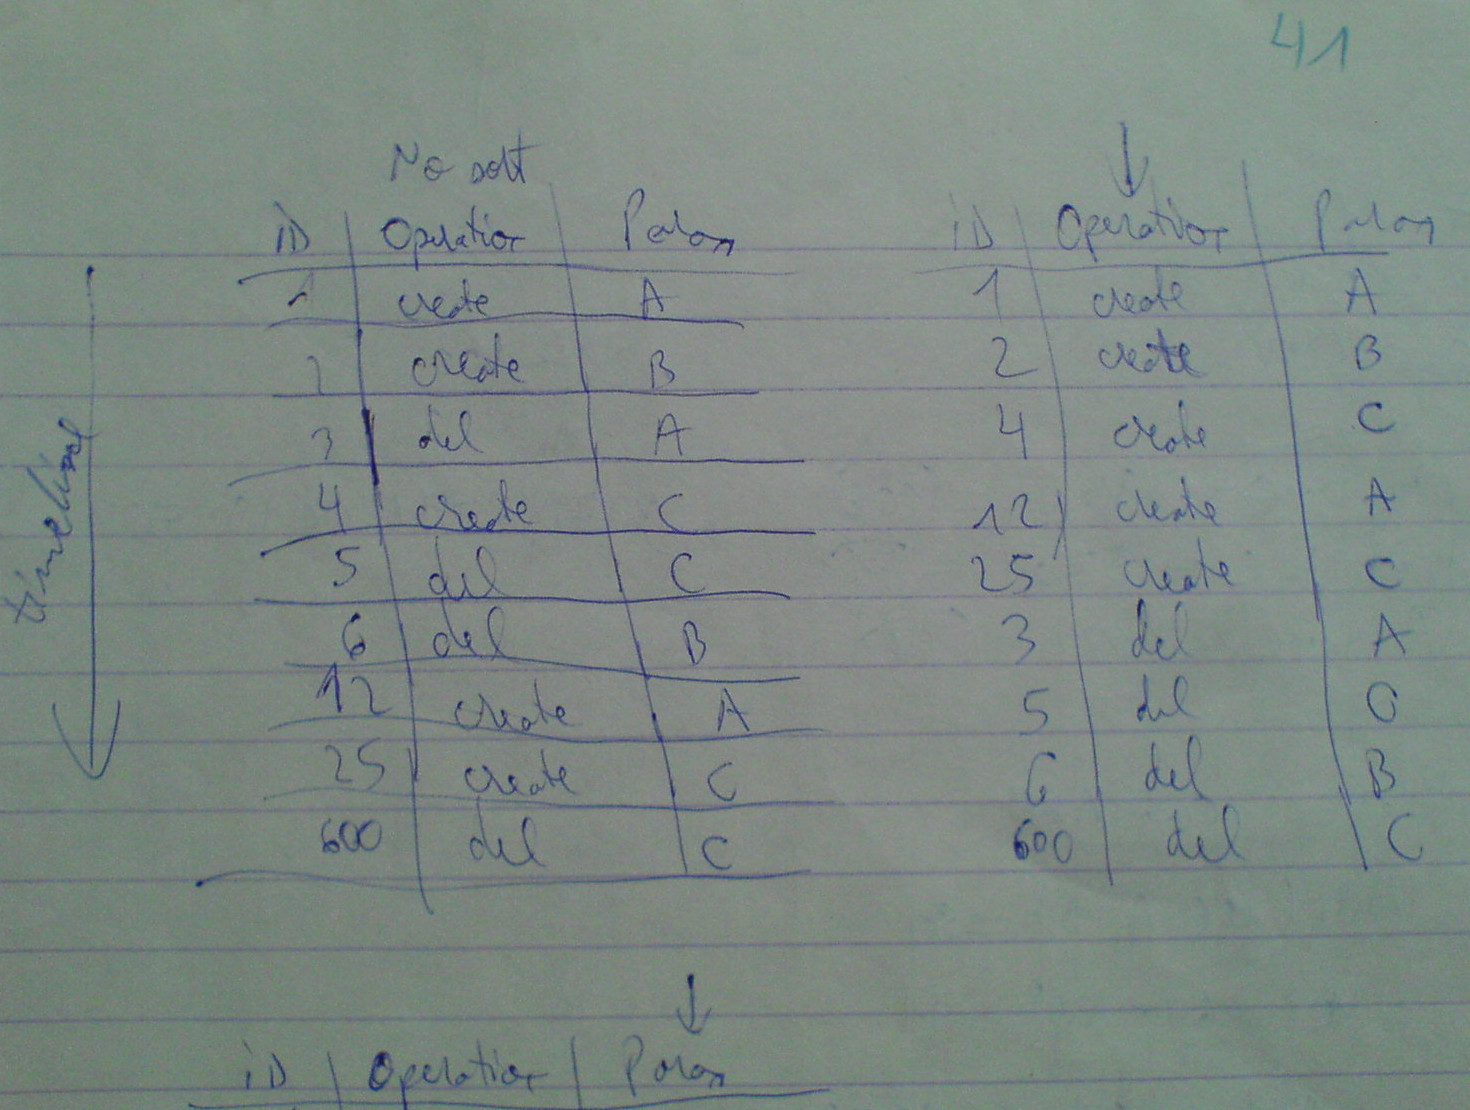 41
No sort
iD Operation Param
1 create A
2 create B
3 del A
4 create C
5 del C
6 del B
12 create A
25 create C
600 del C
timeline
iD Operation Param
1 create A
2 create B
4 create C
12 create A
25 create C
3 del A
5 del C
6 del B
600 del C
iD Operation Param